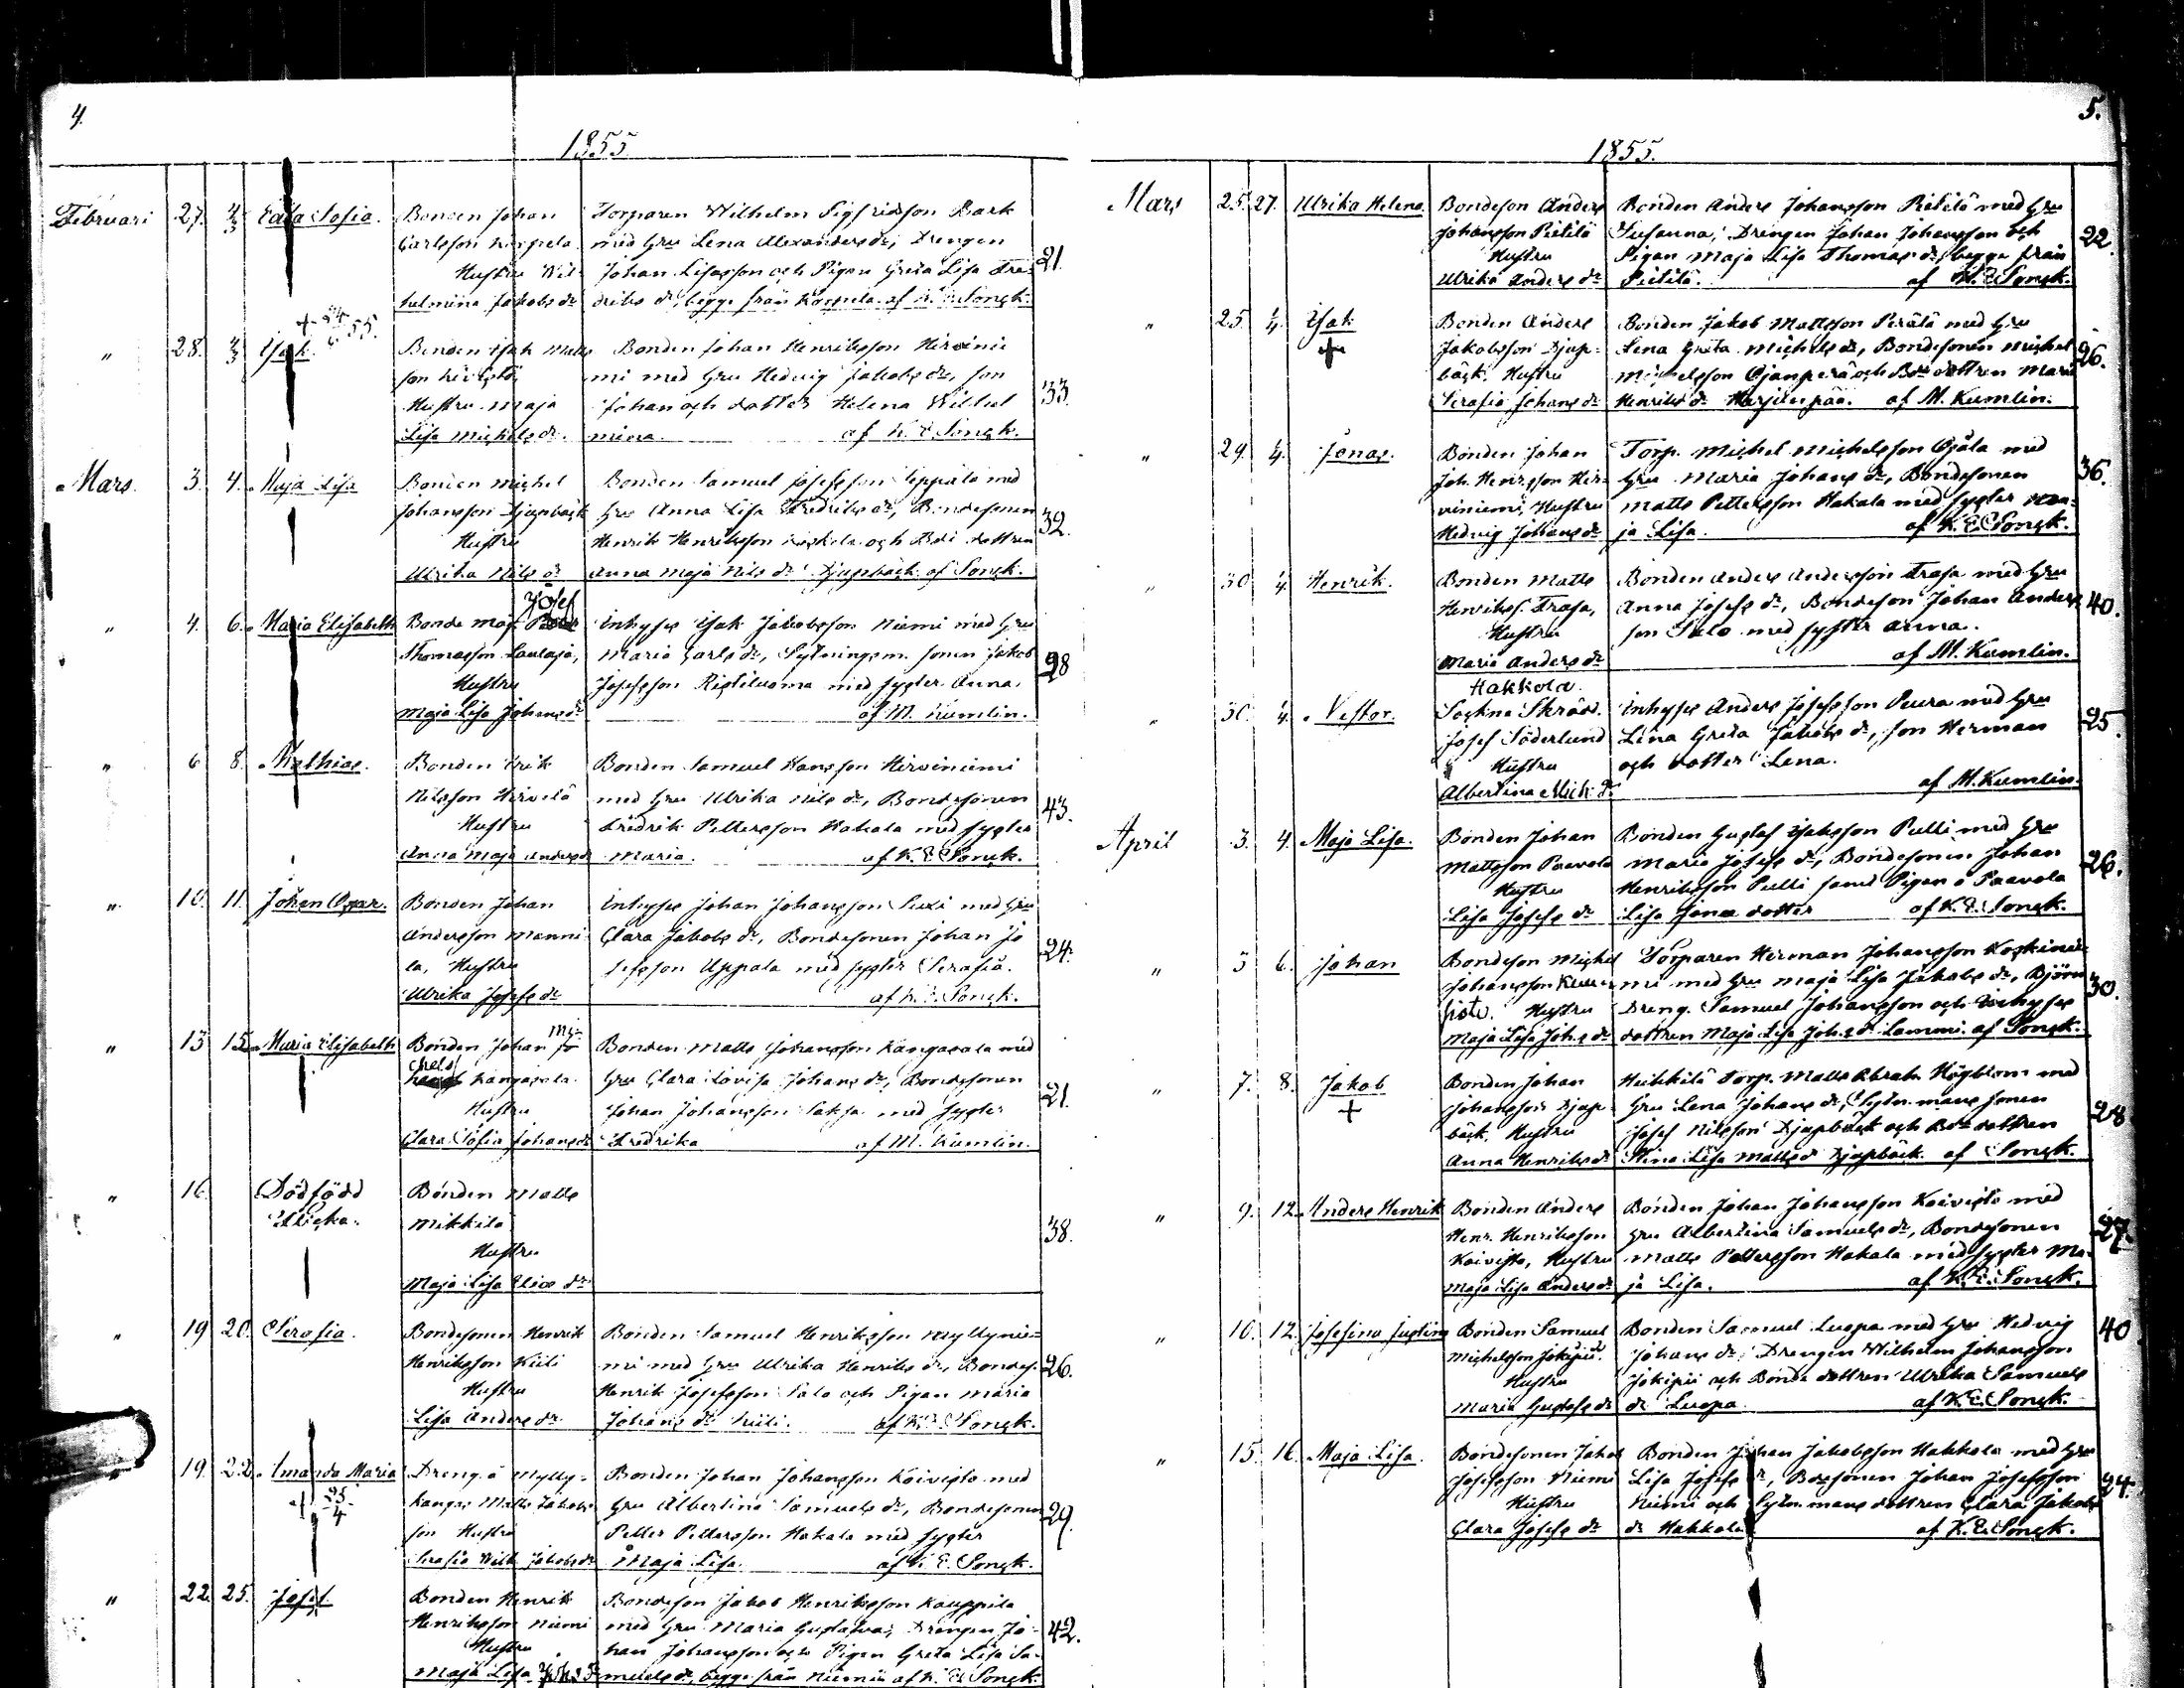 4.
1855
Februari 27. 4/3 Eva Sofia. Bonden Johan Torparen Wilhelm Sigfridsson Bark
Carlsson Korpela. med Gru Lena Alexanders dr, Drengen
Hustru Wil- Johan Lisasson och Pigan Greta Lisa Fre- 21.
helmina Jakobs dr driks dr, begge från Korpela. af K. E. Sonck.
" 28. 4/3 Isak. + 24/6 55. Bonden Isak Matts Bonden Johan Henriksson Hirvinie
son mi med Gru Hedvig Jakobs dr, son
Hustru Maja Johan och dotter Helena Wilhel 33.
Lisa Michels dr. mina. af K. E. Sonck.
Mars. 3. 4. Maja Lisa Bonden Michel Bonden Samuel Josefsson Seppälä med
Johansson Djupbäck Gru Anna Lisa Fredriks dr, Bondesonen
Hustru Henrik Henriksson och Bde dottren 32.
Ulrika Nils dr Anna Maja Nils dr Djupbäck. af Sonck.
" 4. 6. Maria Elisabeth Bonde måg Josef Inhyses Isak Jakobsson Niemi med Gru
Thomasson Laulaja, Maria Carls dr, Sytningsm. sonen Jakob
Hustru Josefsson Ristiluoma med syster Anna. 28
Maja Lisa Johans dr af M. Kumlin.
" 6 8. Mathias. Bonden Erik Bonden Samuel Hansson Hirviniemi
Nilsson Hirvelä med Gru Ulrika Nils dr, Bondesonen
Hustru Fredrik Pettersson Hakala med syster 43.
Anna Maja Anders dr Maria. af K. E. Sonck.
" 10. 11. Johan Oscar. Bonden Johan Inhyses Johan Johansson Susi med Gru
Andersson Manni- Clara Jakobs dr, Bondesonen Johan Jo
la, Hustru sefsson Uppala med syster Serafia. 24.
Ulrika Josefs dr af K. E. Sonck.
" 13 15. Maria Elisabeth Bonden Johan Mi- Bonden Matts Johansson Kangasala med
chels Kangasala. Gru Clara Lovisa Johans dr, Bondesonen
Hustru Johan Johansson Saksa med syster 21.
Clara Sofia Johans dr Fredrika af M. Kumlin.
" 16. Dödfödd Bonden Matts
Flicka. Mikkilä
Hustru 38.
Maja Lisa Elias dr
" 19 20. Serafia. Bondesonen Henrik Bonden Samuel Henriksson Myllynie-
Henriksson Kiili mi med Gru Ulrika Henriks dr, Bondes. 26.
Hustru Henrik Josefsson Salo och Pigan Maria
Lisa Anders dr. Johans dr Kiili. af K. E. Sonck.
" 19. 22. Amanda Maria Dreng å Mylly- Bonden Johan Johansson Koivisto med
+ 25/4 kangas Matts Jakobs Gru Albertina Samuels dr, Bondesonen 29.
son Hustru Petter Pettersson Hakala med syster
Serafia Wilh Jakobs dr Maja Lisa. af K. E. Sonck.
" 22. 25. Josef. Bonden Henrik Bondeson Jakob Henriksson Kauppila
Henriksson Niemi med Gru Maria Gustafva, Drengen Jo- 42.
Hustru han Johansson och Pigan Greta Lisa Sa-
Maja Lisa Johs dr muels dr, begge från Niemi af K. E. Sonck.
5.
1855.
Mars 25. 27. Ulrika Helena Bondeson Anders Bonden Anders Johansson Pietilä med Gru
Johansson Pietilä Susanna, Drengen Johan Johansson och 22
Hustru Pigan Maja Lisa Thomas dr, begge från
Ulrika Anders dr Pietilä. af K. E. Sonck.
" 25. 1/4. Isak Bonden Anders Bonden Jakob Mattsson Perälä med Gru
+ Jakobsson Djup- Lena Greta Michels dr, Bondesonen Michel 26.
bäck. Hustru Michelsson Ojanperä och Bde dottren Maria
Serafia Johans dr Henriks dr Harjunpää. af M. Kumlin.
" 29. 1/4. Jonas. Bonden Johan Torp. Michel Michelsson Ojala med
Joh. Henrsson Hir- Gru Maria Johans dr, Bondesonen 36.
viniemi, Hustru Matts Pettersson Hakala med syster Ma-
Hedvig Johans dr ja Lisa. af K. E. Sonck.
" 30 1/4. Henrik. Bonden Matts Bonden Anders Andersson Frasa med Gru
Henrikss. Frasa, Anna Josefs dr, Bondeson Johan Anders 40.
Hustru son Salo med syster Anna.
Maria Anders dr af M. Kumlin.
Hakkola.
" 30. 1/4. Nestor. Sockne Skräd. Inhyses Anders Josefsson Peura med Gru
Josef Söderlund Lena Greta Jakobs dr, son Herman 25.
Hustru och dotter Lena.
Albertina Mich. dr af M. Kumlin.
April 3. 4. Maja Lisa. Bonden Johan Bonden Gustaf Isaksson Pulli med Gru
Mattsson Paavola Maria Josefs dr, Bondesonen Johan
Hustru Henriksson Pulli samt Pigan å Paavola 26.
Lisa Josefs dr Lisa Jonas dotter af K. E. Sonck.
" 5 6. Johan Bondeson Michel Torparen Herman Johansson Koskinie
Johansson mi med Gru Maja Lisa Jakobs dr, Björn 30.
Hustru Dreng. Samuel Johansson och Inhyses
Maja Lisa Joh.s dr dottren Maja Lisa Joh.s dr Lammi. af Sonck.
" 7. 8. Jakob Bonden Johan Heikkilä Torp. Matts Abrah. Högblom med
+ Johansson Djup- Gru Lena Johans dr, Sytn. mans sonen 28
bäck. Hustru Josef Nilsson Djupbäck och Bde dottren
Anna Henriks dr Stina Lisa Matts dr Djupbäck. af Sonck.
" 9. 12. Anders Henrik Bonden Anders Bonden Johan Johansson Koivisto med
Henr. Henriksson Gru Albertina Samuels dr, Bondesonen 27.
Koivisto, Hustru Matts Pettersson Hakala med syster Ma-
Maja Lisa Anders dr ja Lisa. af K. E. Sonck.
" 10. 12. Josefina Justina Bonden Samuel Bonden Samuel Luopa med Gru Hedvig 40
Michelsson Jokipii. Johans dr, Drengen Wilhelm Johansson
Hustru Jokipii och Bonde dottren Ulrika Samuels
Maria Gustafs dr dr Luopa. af K. E. Sonck.
" 15. 16. Maja Lisa. Bondesonen Jakob Bonden Johan Jakobsson Hakkola med Gru
Josefsson Niemi Lisa Josefs dr, Bdesonen Johan Josefsson 24.
Hustru Niemi och Sytn. mans dottren Clara Jakobs
Clara Josefs dr dr Hakkola af K. E. Sonck.